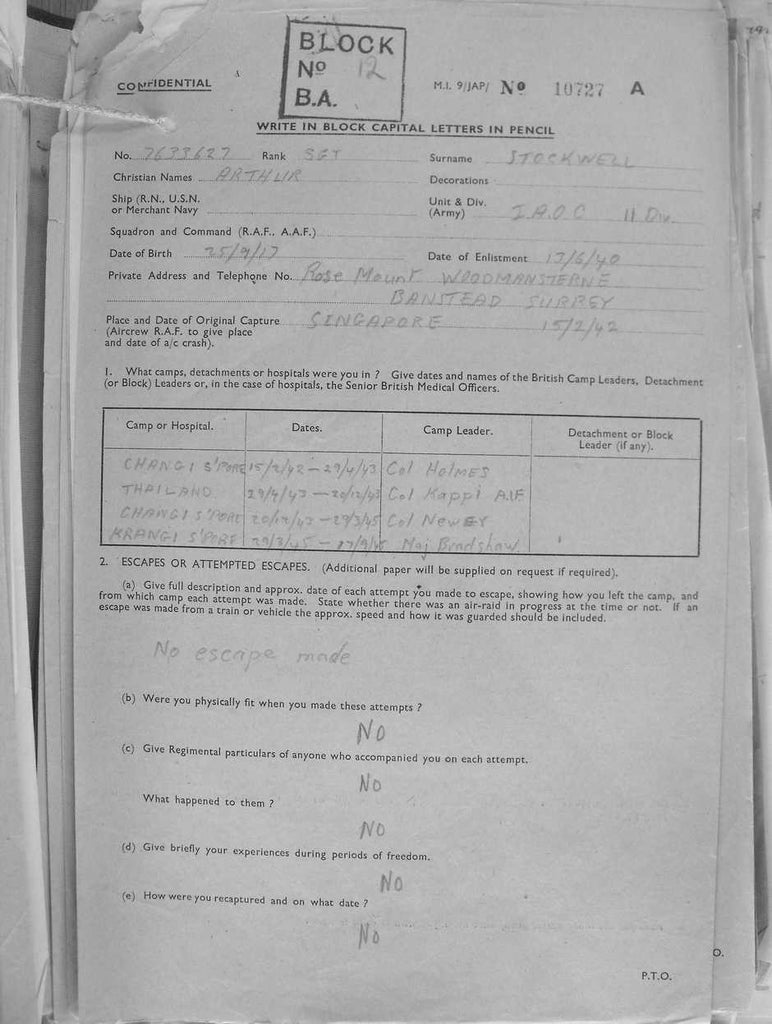 BLOCK
No 12
B.A.
CONFIDENTIAL
M.I. 9/JAP/ No 10727 A
WRITE IN BLOCK CAPITAL LETTERS IN PENCIL
No. 7633627 Rank SGT Surname STOCKWELL
Christian Names ARTHUR Decorations
Ship (R.N., U.S.N.
or Merchant Navy
Unit & Div.
(Army) I.A.O.C 11 Div.
Squadron and Command (R.A.F., A.A.F.)
Date of Birth 25/9/17 Date of Enlistment 17/6/40
Private Address and Telephone No. Rose Mount WOODMANSTERNE
BANSTEAD SURREY
Place and Date of Original Capture SINGAPORE 15/2/42
(Aircrew R.A.F. to give place
and date of a/c crash).
1. What camps, detachments or hospitals were you in ? Give dates and names of the British Camp Leaders, Detachment
(or Block) Leaders or, in the case of hospitals, the Senior British Medical Officers.
Camp or Hospital. Dates. Camp Leader. Detachment or Block
Leader (if any).
CHANGI S'PORE 15/2/42 — 29/4/43 Col HOLMES
THAILAND 29/4/43 — 20/12/43 Col Kappi AIF
CHANGI S'PORE 20/12/43 — 29/3/45 Col NEWEY
KRANGI S'PORE 29/3/45 — Maj Bradshaw
2. ESCAPES OR ATTEMPTED ESCAPES. (Additional paper will be supplied on request if required).
(a) Give full description and approx. date of each attempt you made to escape, showing how you left the camp, and
from which camp each attempt was made. State whether there was an air-raid in progress at the time or not. If an
escape was made from a train or vehicle the approx. speed and how it was guarded should be included.
No escape made
(b) Were you physically fit when you made these attempts ?
NO
(c) Give Regimental particulars of anyone who accompanied you on each attempt.
NO
What happened to them ?
NO
(d) Give briefly your experiences during periods of freedom.
NO
(e) How were you recaptured and on what date ?
NO
O.
P.T.O.